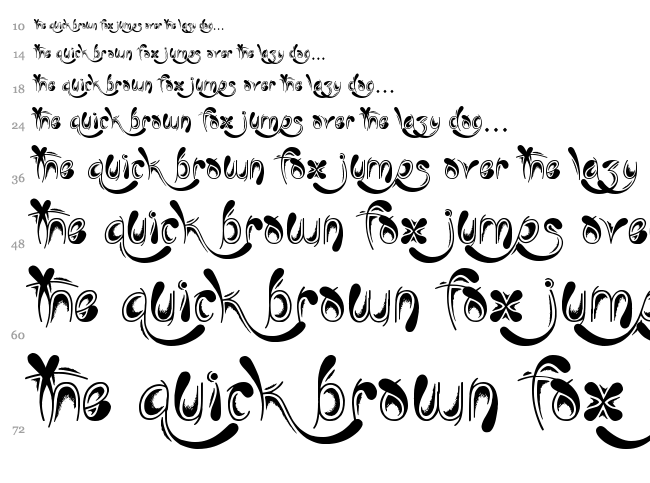 10 the quick brown fox jumps over the lazy dog...
14 the quick brown fox jumps over the lazy dog...
18 the quick brown fox jumps over the lazy dog...
24 the quick brown fox jumps over the lazy dog...
36 the quick brown fox jumps over the lazy
48 the quick brown fox jumps ove
60 the quick brown fox jump
72 the quick brown fox